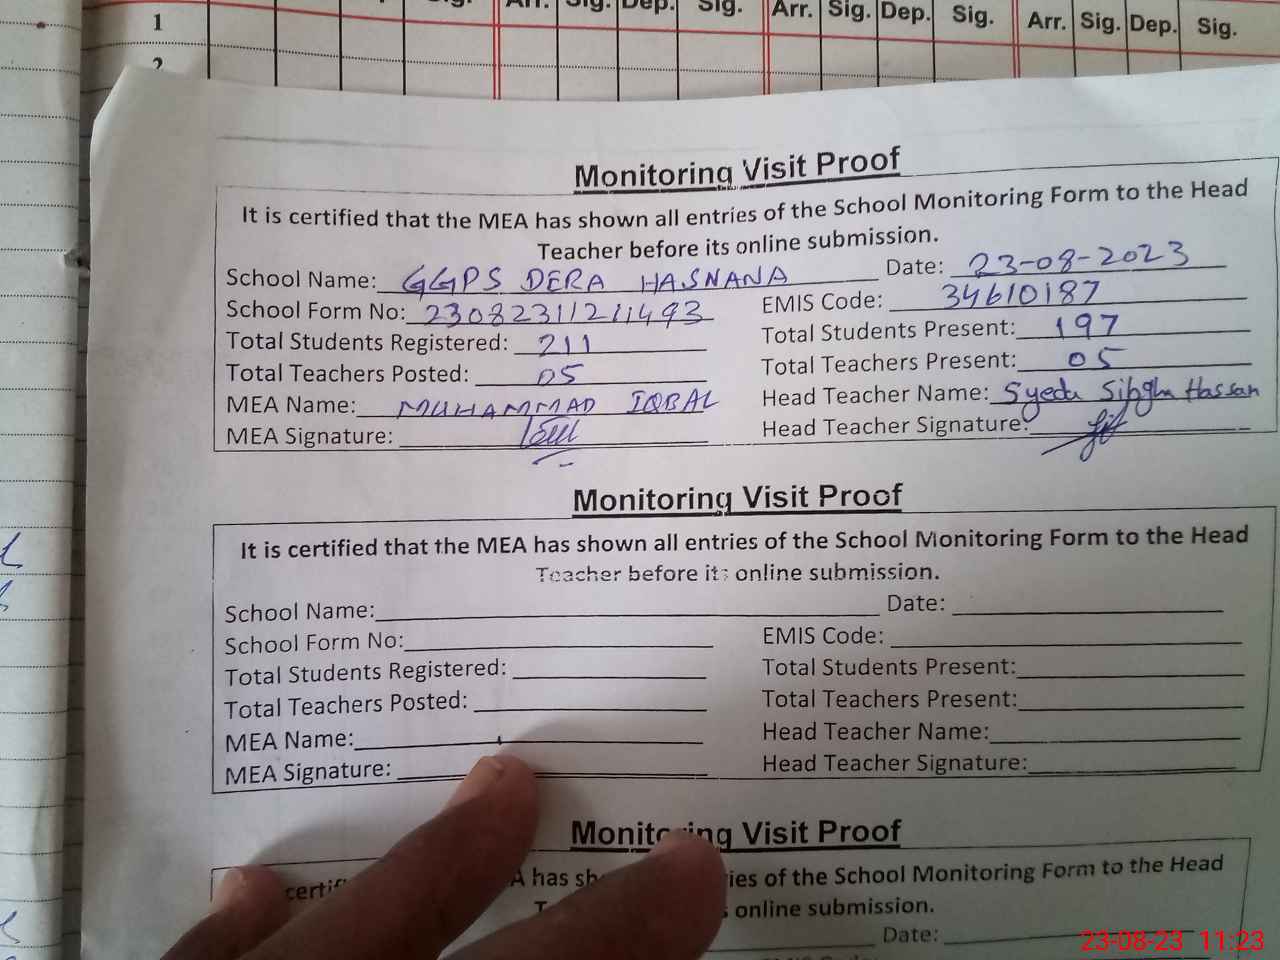 Arr. Sig. Dep. Sig. Arr. Sig. Dep. Sig. Arr. Sig. Dep. Sig.
1
2
Monitoring Visit Proof
It is certified that the MEA has shown all entries of the School Monitoring Form to the Head
Teacher before its online submission.
School Name: GGPS DERA HASNANA Date: 23-08-2023
School Form No: 23082311211493 EMIS Code: 34610187
Total Students Registered: 211 Total Students Present: 197
Total Teachers Posted: 05 Total Teachers Present: 05
MEA Name: MUHAMMAD IQBAL Head Teacher Name: Syeda Sibgha Hassan
MEA Signature: Head Teacher Signature:
Monitoring Visit Proof
It is certified that the MEA has shown all entries of the School Monitoring Form to the Head
Teacher before its online submission.
School Name: Date:
School Form No: EMIS Code:
Total Students Registered: Total Students Present:
Total Teachers Posted: Total Teachers Present:
MEA Name: Head Teacher Name:
MEA Signature: Head Teacher Signature:
Monitoring Visit Proof
has ies of the School Monitoring Form to the Head
online submission.
Date:
23-08-23 11:23